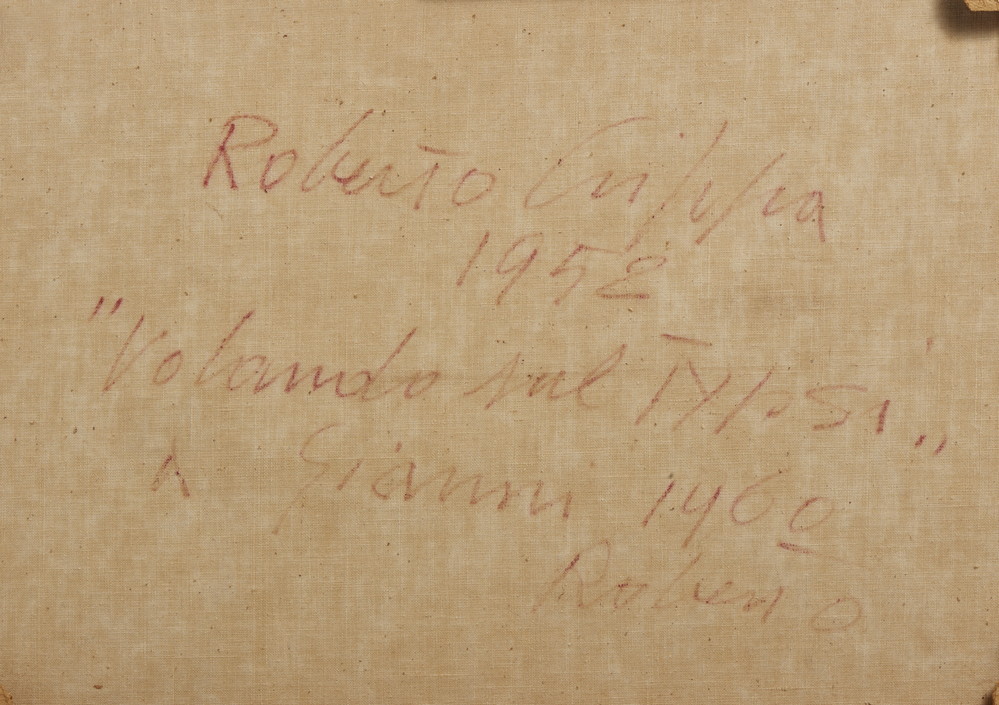 Roberto Crippa
1952
"Volando sul
A Gianni 1960
Roberto